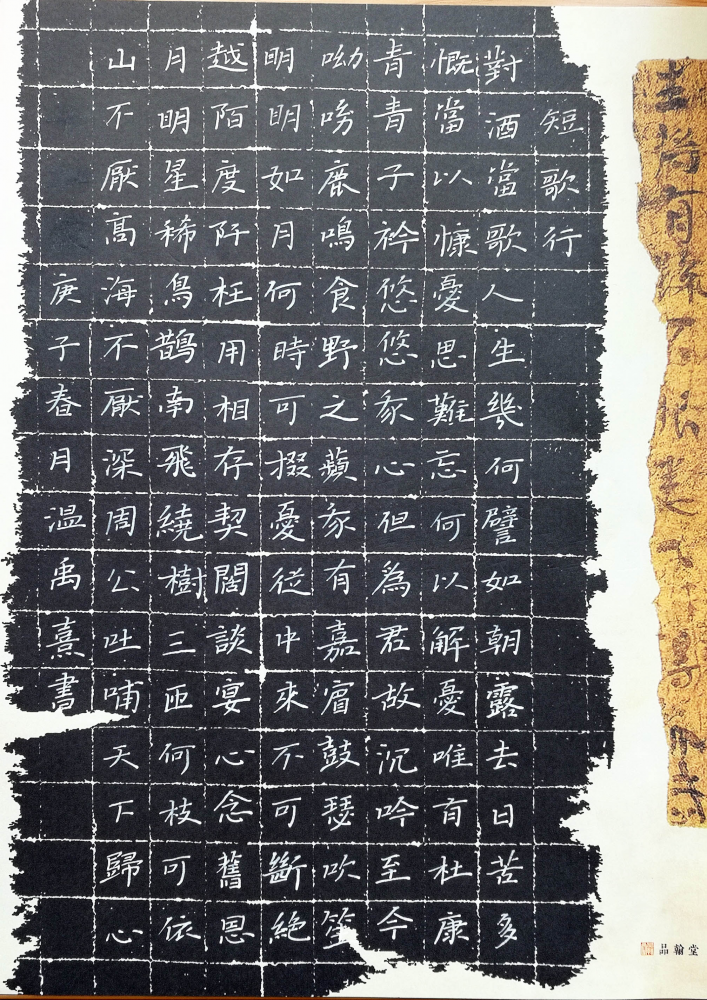 短歌行
對酒當歌人生幾何譬如朝露去日苦多
慨當以慷憂思難忘何以解憂唯有杜康
青青子衿悠悠我心但為君故沉吟至今
呦呦鹿鳴食野之蘋我有嘉賓鼓瑟吹笙
明明如月何時可掇憂從中來不可斷絕
越陌度阡枉用相存契闊談宴心念舊恩
月明星稀烏鵲南飛繞樹三匝何枝可依
山不厭高海不厭深周公吐哺天下歸心
庚子春月溫禹熹書
品翰堂